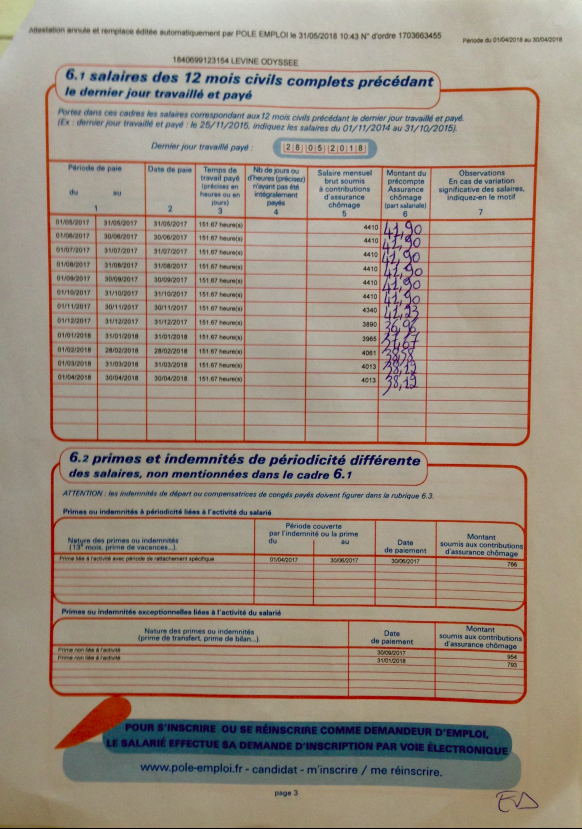 Attestation annule et remplace éditée automatiquement par POLE EMPLOI le 31/05/2018 10:43 N° d'ordre 1703663455
Période du 01/04/2018 au 30/04/2018
1840699123154 LEVINE ODYSSEE
6.1 salaires des 12 mois civils complets précédant
le dernier jour travaillé et payé
Portez dans ces cadres les salaires correspondant aux 12 mois civils précédant le dernier jour travaillé et payé.
(Ex : dernier jour travaillé et payé : le 25/11/2015, indiquez les salaires du 01/11/2014 au 31/10/2015).
Dernier jour travaillé payé : 28 05 2018
Période de paie du au 1
Date de paie 2
Temps de travail payé (précisez en heures ou en jours) 3
Nb de jours ou d'heures (précisez) n'ayant pas été intégralement payés 4
Salaire mensuel brut soumis à contributions d'assurance chômage 5
Montant du précompte Assurance chômage (part salariale) 6
Observations En cas de variation significative des salaires, indiquez-en le motif 7
01/05/2017 31/05/2017 31/05/2017 151.67 heure(s) 4410 41,90
01/06/2017 30/06/2017 30/06/2017 151.67 heure(s) 4410 41,90
01/07/2017 31/07/2017 31/07/2017 151.67 heure(s) 4410 41,90
01/08/2017 31/08/2017 31/08/2017 151.67 heure(s) 4410 41,90
01/09/2017 30/09/2017 30/09/2017 151.67 heure(s) 4410 41,90
01/10/2017 31/10/2017 31/10/2017 151.67 heure(s) 4410 41,90
01/11/2017 30/11/2017 30/11/2017 151.67 heure(s) 4340 41,23
01/12/2017 31/12/2017 31/12/2017 151.67 heure(s) 3890 36,96
01/01/2018 31/01/2018 31/01/2018 151.67 heure(s) 3965 37,67
01/02/2018 28/02/2018 28/02/2018 151.67 heure(s) 4061 38,58
01/03/2018 31/03/2018 31/03/2018 151.67 heure(s) 4013 38,12
01/04/2018 30/04/2018 30/04/2018 151.67 heure(s) 4013 38,12
6.2 primes et indemnités de périodicité différente
des salaires, non mentionnées dans le cadre 6.1
ATTENTION : les indemnités de départ ou compensatrices de congés payés doivent figurer dans la rubrique 6.3.
Primes ou indemnités à périodicité liées à l'activité du salarié
Nature des primes ou indemnités
(13e mois, prime de vacances...).
Période couverte
par l'indemnité ou la prime
du au
Date
de paiement
Montant
soumis aux contributions
d'assurance chômage
Prime liée à l'activité avec période de rattachement spécifique 01/04/2017 30/06/2017 30/06/2017 766
Primes ou indemnités exceptionnelles liées à l'activité du salarié
Nature des primes ou indemnités
(prime de transfert, prime de bilan...).
Date
de paiement
Montant
soumis aux contributions
d'assurance chômage
Prime non liée à l'activité 30/09/2017 954
Prime non liée à l'activité 31/01/2018 793
POUR S'INSCRIRE OU SE RÉINSCRIRE COMME DEMANDEUR D'EMPLOI,
LE SALARIÉ EFFECTUE SA DEMANDE D'INSCRIPTION PAR VOIE ÉLECTRONIQUE
www.pole-emploi.fr - candidat - m'inscrire / me réinscrire.
page 3